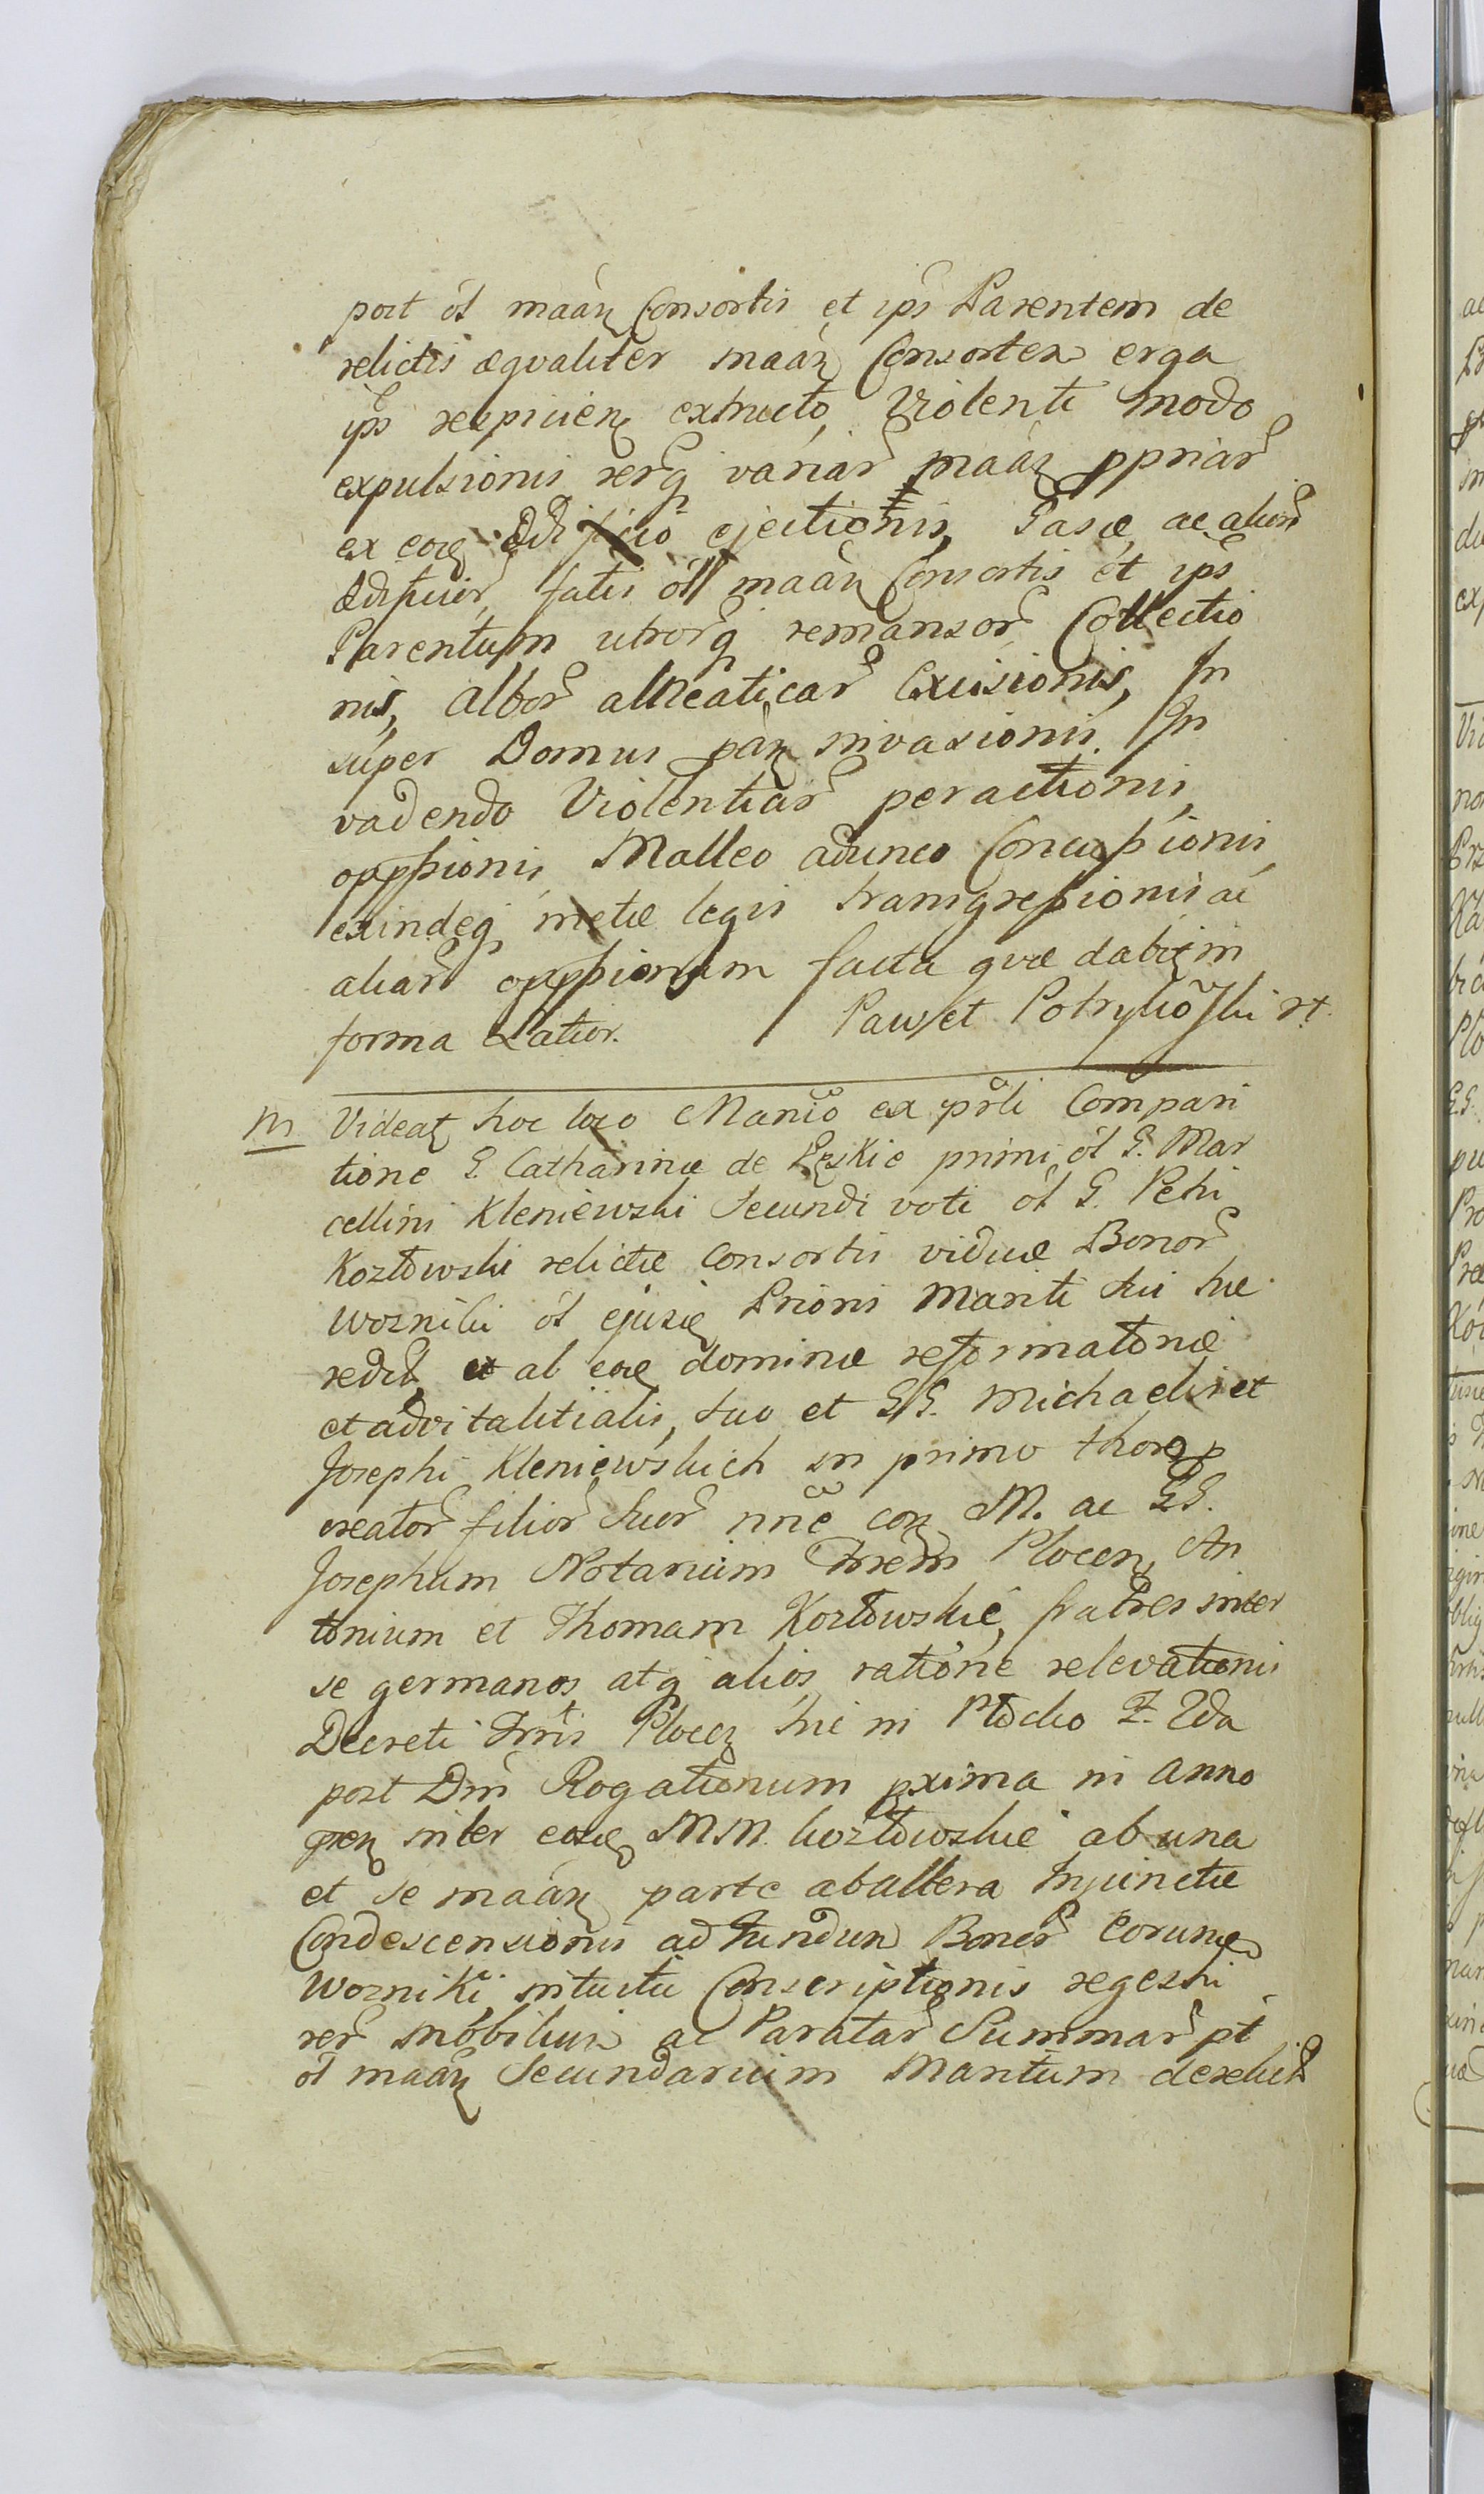 post ol maāᷓ Consortis et ips Parentem de
relictis æqvaliter maāᷓ Consortem erga
ips respicien extructo, Violenti modo
expulsionis rerq variar maāᷓ ppriar
ex eoᷓ Ædificio ejectionis, Pasæ, ac alior
Ædificior, fatis ol maāᷓ Consortis et ips
Parentum utrorq remansor Collectio
nis, Albor alkeaticar Excisionis, In
super Domus pāᷓ invasionis. In
vadendo Violentiar peractionis,
oppssionis, Malleo adunco Concussionis
exindeq metæ legis transgressionis ac
aliar oppssionum facta qvæ dabiᷓ in
forma Latior. Paweł Potrykoski mp.
M Videaᷓ hoc loco Manio ex prli Compari
tione G. Catharinæ de primi ol G. Mar
cellini Kleniewski Secundi voti ol G. Petri
Kozłowski relictæ Consortis viduæ Bonor
Wozniki ol ejusᷓ Prioris Mariti sui hæ
redis et ab eoᷓ dominæ reformatoriæ
et advitalitialis, suo et GG. Michaelis et
Josephi Kleniewskich in primo thoro p
creator filior suor nnē coᷓ M. ac GG.
Josephum Notarium Trrem Plocen, An
tonium et Thomam Kozłowskie, fratres inter
se germanos, atq alios, ratione relevationis
Decreti Trris Plocen hic in Płocko F. 2da
post Dm Rogationum pxima in anno
pren inter eosᷓ MM. Kozłowskie ab una
et se maāᷓ parte ab altera Injunctæ
Condescensionis ad fundum Bonor eorunᷓ
Wozniki, intuitu Conscriptionis regestri
rer mobilium ac Paratar Summar pt
ol maāᷓ Secundarium Maritum derelict